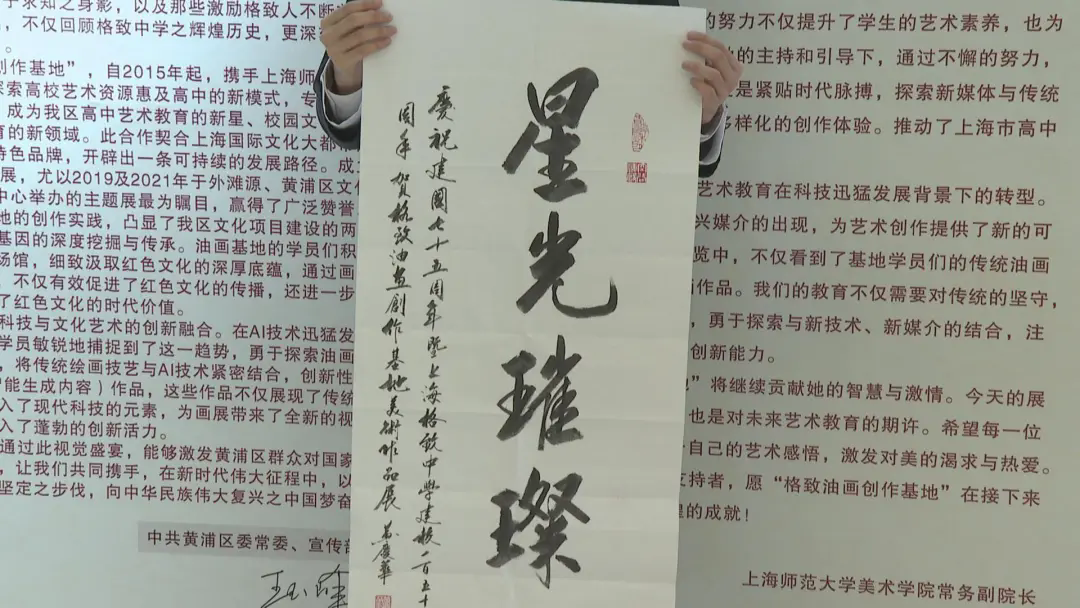 求知之身影，以及那些激励格致人不断
，不仅回顾格致中学之辉煌历史，更深
。
创作基地”，自2015年起，携手上海师
探索高校艺术资源惠及高中的新模式，专
，成为我区高中艺术教育的新星、校园文
育的新领域。此合作契合上海国际文化大都
特色品牌，开辟出一条可持续的发展路径。成
展，尤以2019及2021年于外滩源、黄浦区文化
中心举办的主题展最为瞩目，赢得了广泛赞誉
地的创作实践，凸显了我区文化项目建设的两
基因的深度挖掘与传承。油画基地的学员们积
场馆，细致汲取红色文化的深厚底蕴，通过画
，不仅有效促进了红色文化的传播，还进一步
了红色文化的时代价值。
科技与文化艺术的创新融合。在AI技术迅猛发
学员敏锐地捕捉到了这一趋势，勇于探索油画
，将传统绘画技艺与AI技术紧密结合，创新性
智能生成内容）作品，这些作品不仅展现了传统
入了现代科技的元素，为画展带来了全新的视
入了蓬勃的创新活力。
通过此视觉盛宴，能够激发黄浦区群众对国家
，让我们共同携手，在新时代伟大征程中，以
坚定之步伐，向中华民族伟大复兴之中国梦奋
中共黄浦区委常委、宣传部
星光璀璨
慶祝建國七十五周年暨上海格致中学建校一百五十
周年 賀格致油画創作基地美術作品展
的努力不仅提升了学生的艺术素养，也为
的主持和引导下，通过不懈的努力，
是紧贴时代脉搏，探索新媒体与传统
多样化的创作体验。推动了上海市高中
艺术教育在科技迅猛发展背景下的转型。
兴媒介的出现，为艺术创作提供了新的可
览中，不仅看到了基地学员们的传统油画
作品。我们的教育不仅需要对传统的坚守，
，勇于探索与新技术、新媒介的结合，注
创新能力。
”将继续贡献她的智慧与激情。今天的展
也是对未来艺术教育的期许。希望每一位
自己的艺术感悟，激发对美的渴求与热爱。
支持者，愿“格致油画创作基地”在接下来
的成就！
上海师范大学美术学院常务副院长